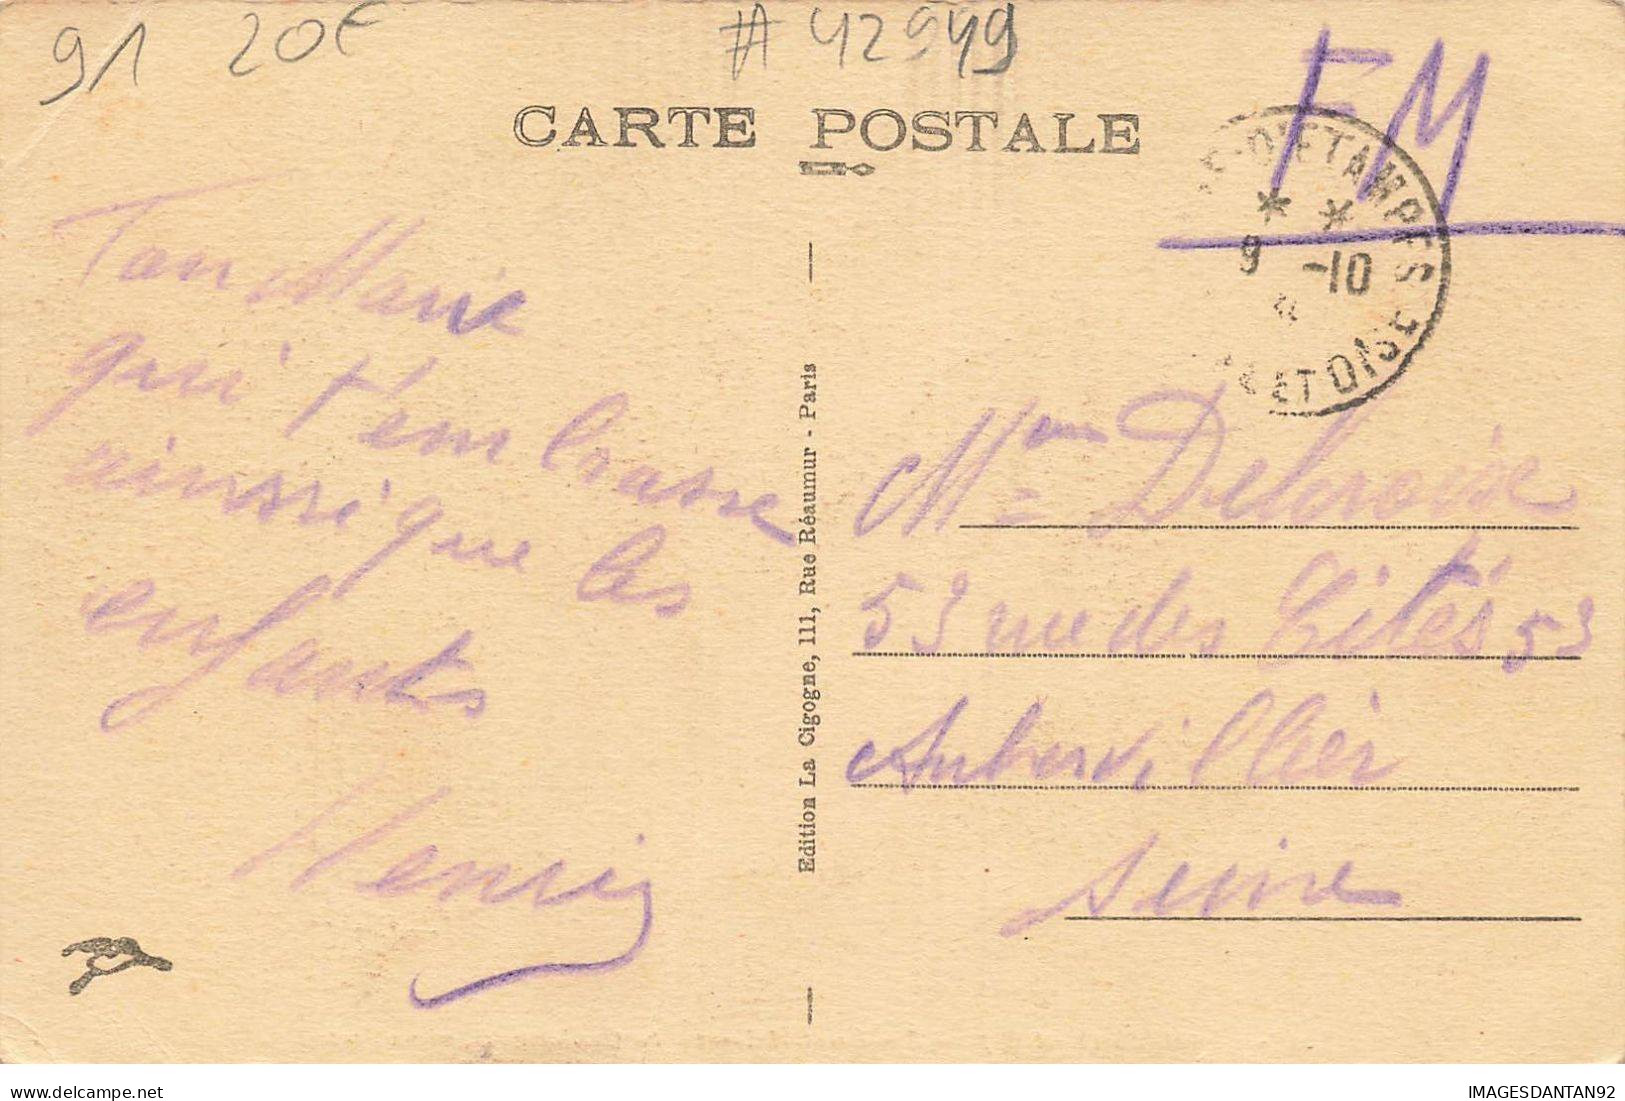 91 20€ # 42949
FM
CARTE POSTALE
D'ETAMPES
* *
9 -10
ET OISE
Ton Marie
qui t'embrasse
ainssi que les
enfants
Henri
Edition La Cigogne, 111, Rue Réaumur - Paris
Mme Delaroise
53 rue des Cités 53
Aubervillier
Seine
IMAGESDANTAN92